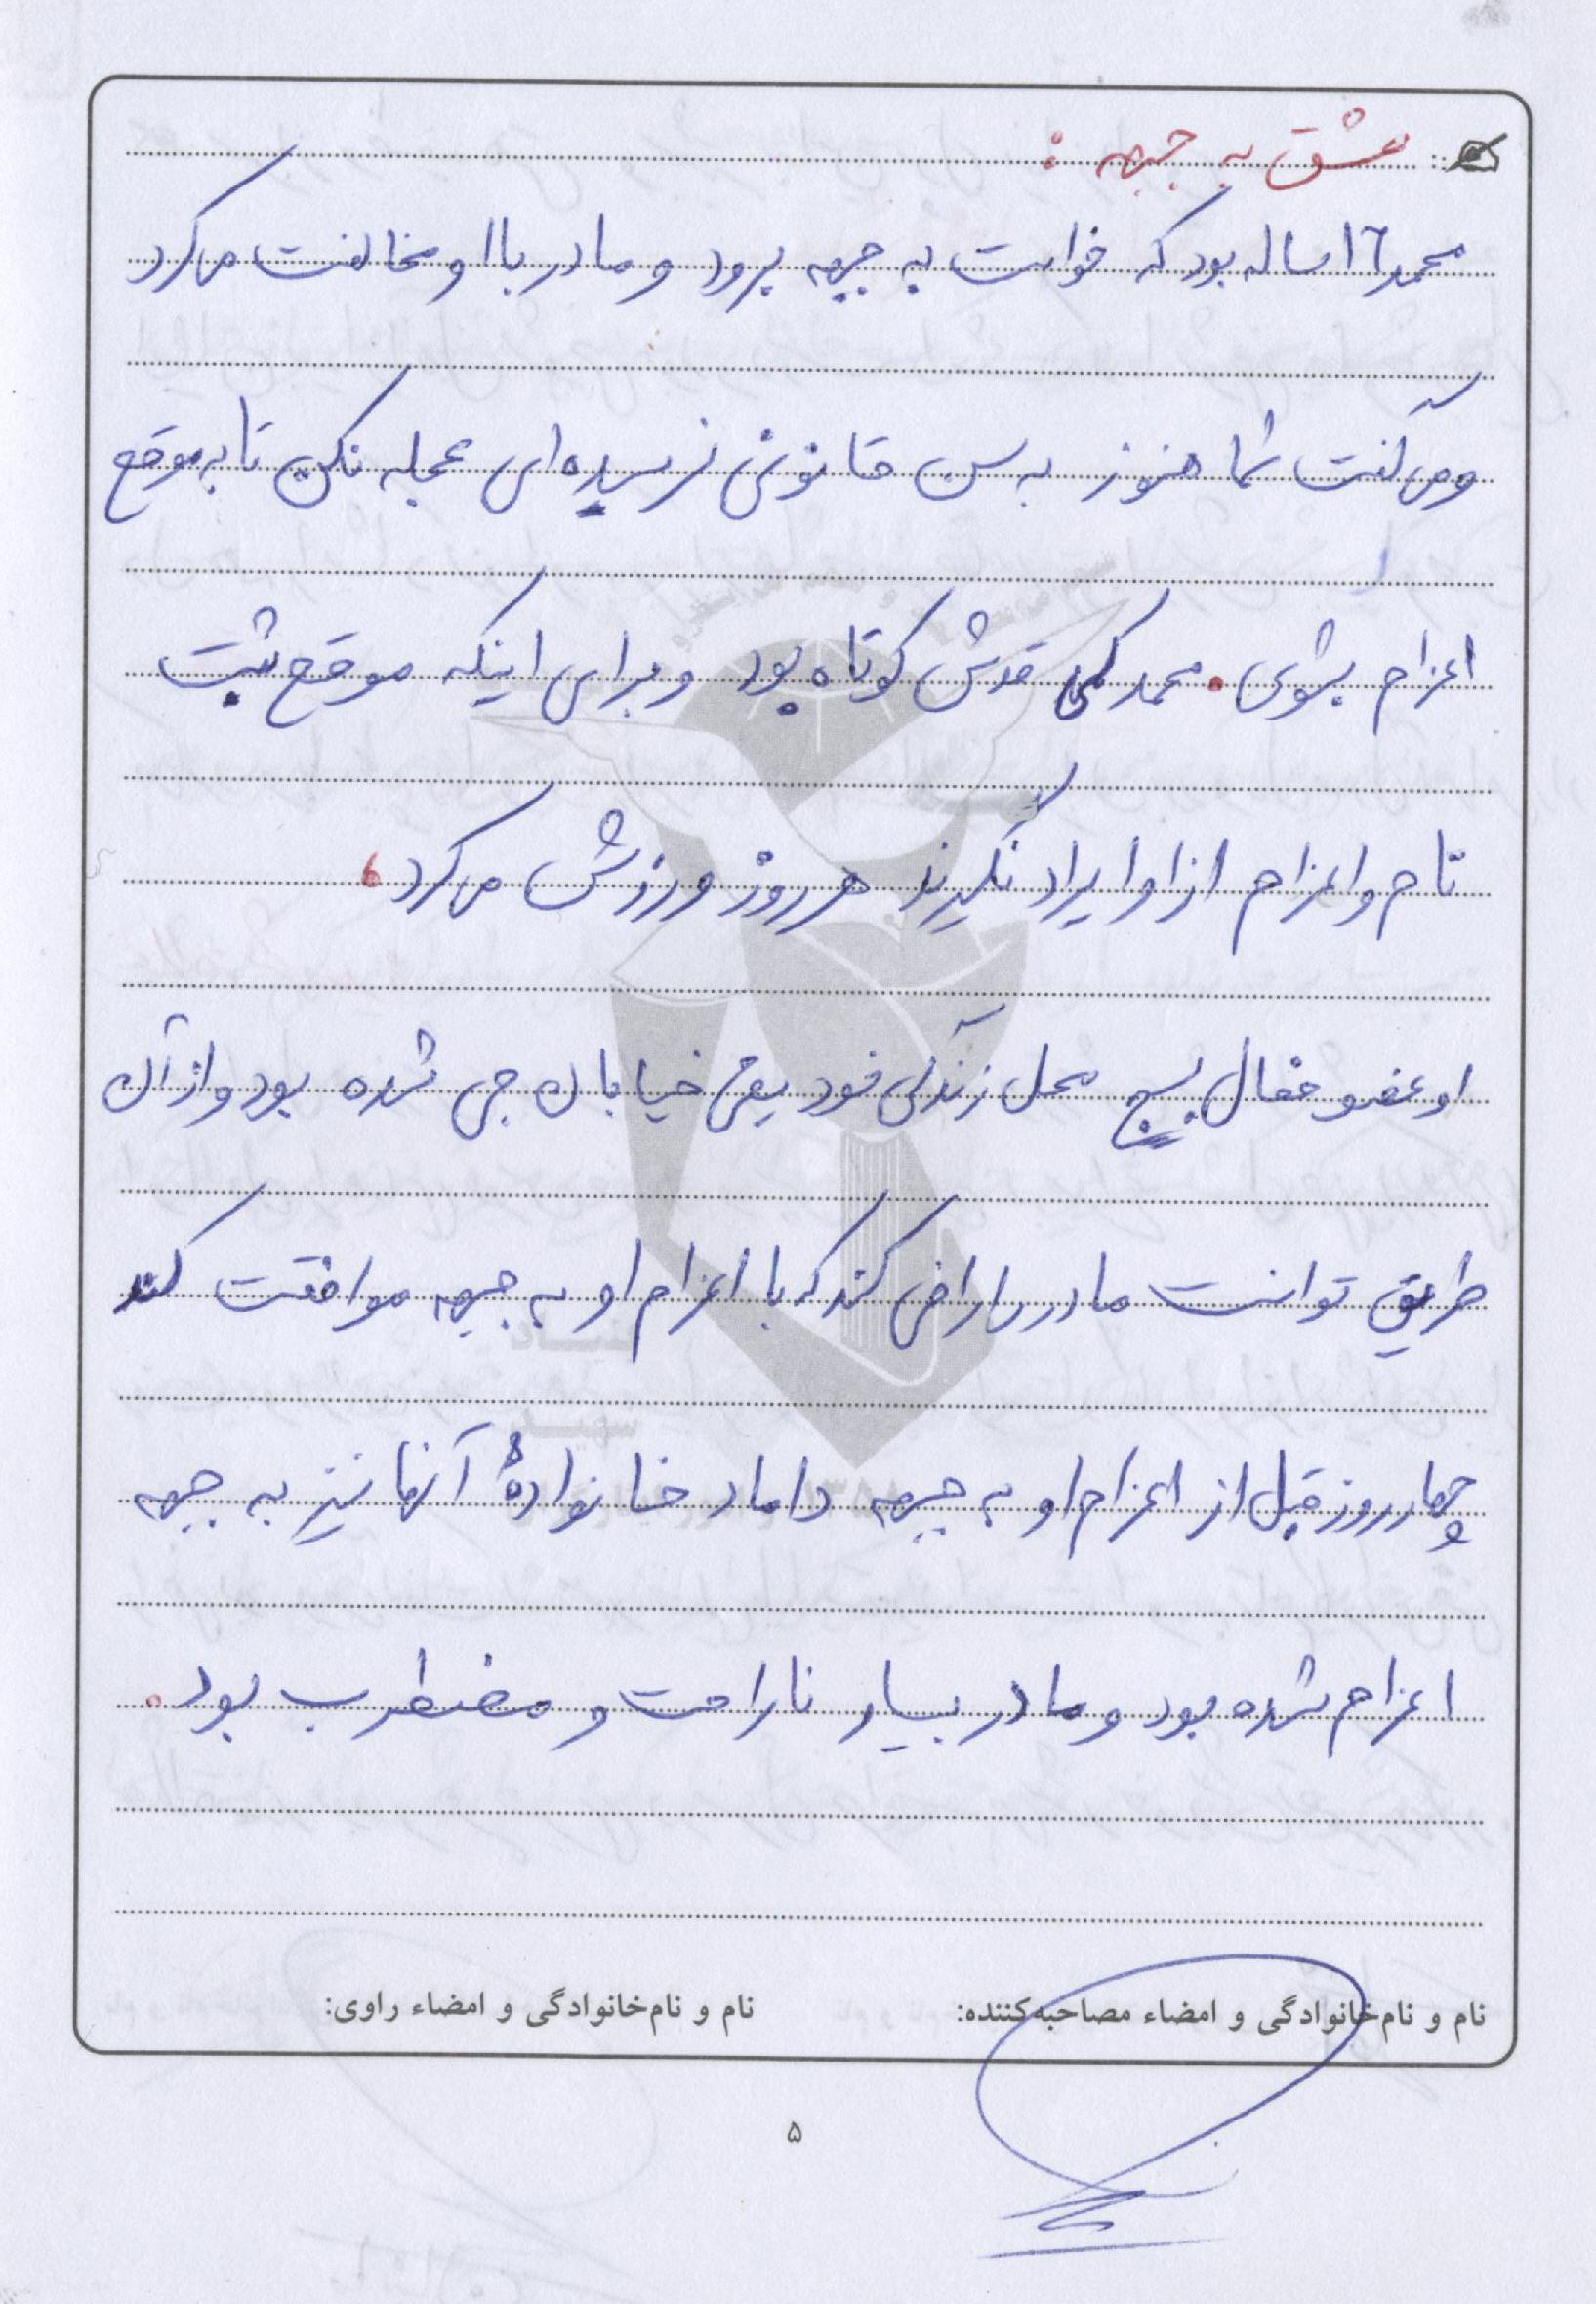 عشق به جبهه :
محمد ۱۶ ساله بود که خواست به جبهه برود و مادر با او مخالفت می‌کرد
و می‌گفت شما هنوز به سن قانونی نرسیده‌ای عجله نکن تا به موقع
اعزام بشوی . محمد کمی قدش کوتاه بود و برای اینکه موقع ثبت
نام و اعزام از او ایراد نگیرند هر روز ورزش می‌کرد .
او عضو فعال بسیج محل زندگی خود یعنی خیابان جی شده بود و از آن
طریق توانست مادر را راضی کند که با اعزام او به جبهه موافقت کند
چهار روز قبل از اعزام او به جبهه داماد خانوادهٔ آنها نیز به جبهه
اعزام شده بود و مادر بسیار ناراحت و مضطرب بود .
نام و نام‌خانوادگی و امضاء مصاحبه‌کننده: نام و نام‌خانوادگی و امضاء راوی:
۵